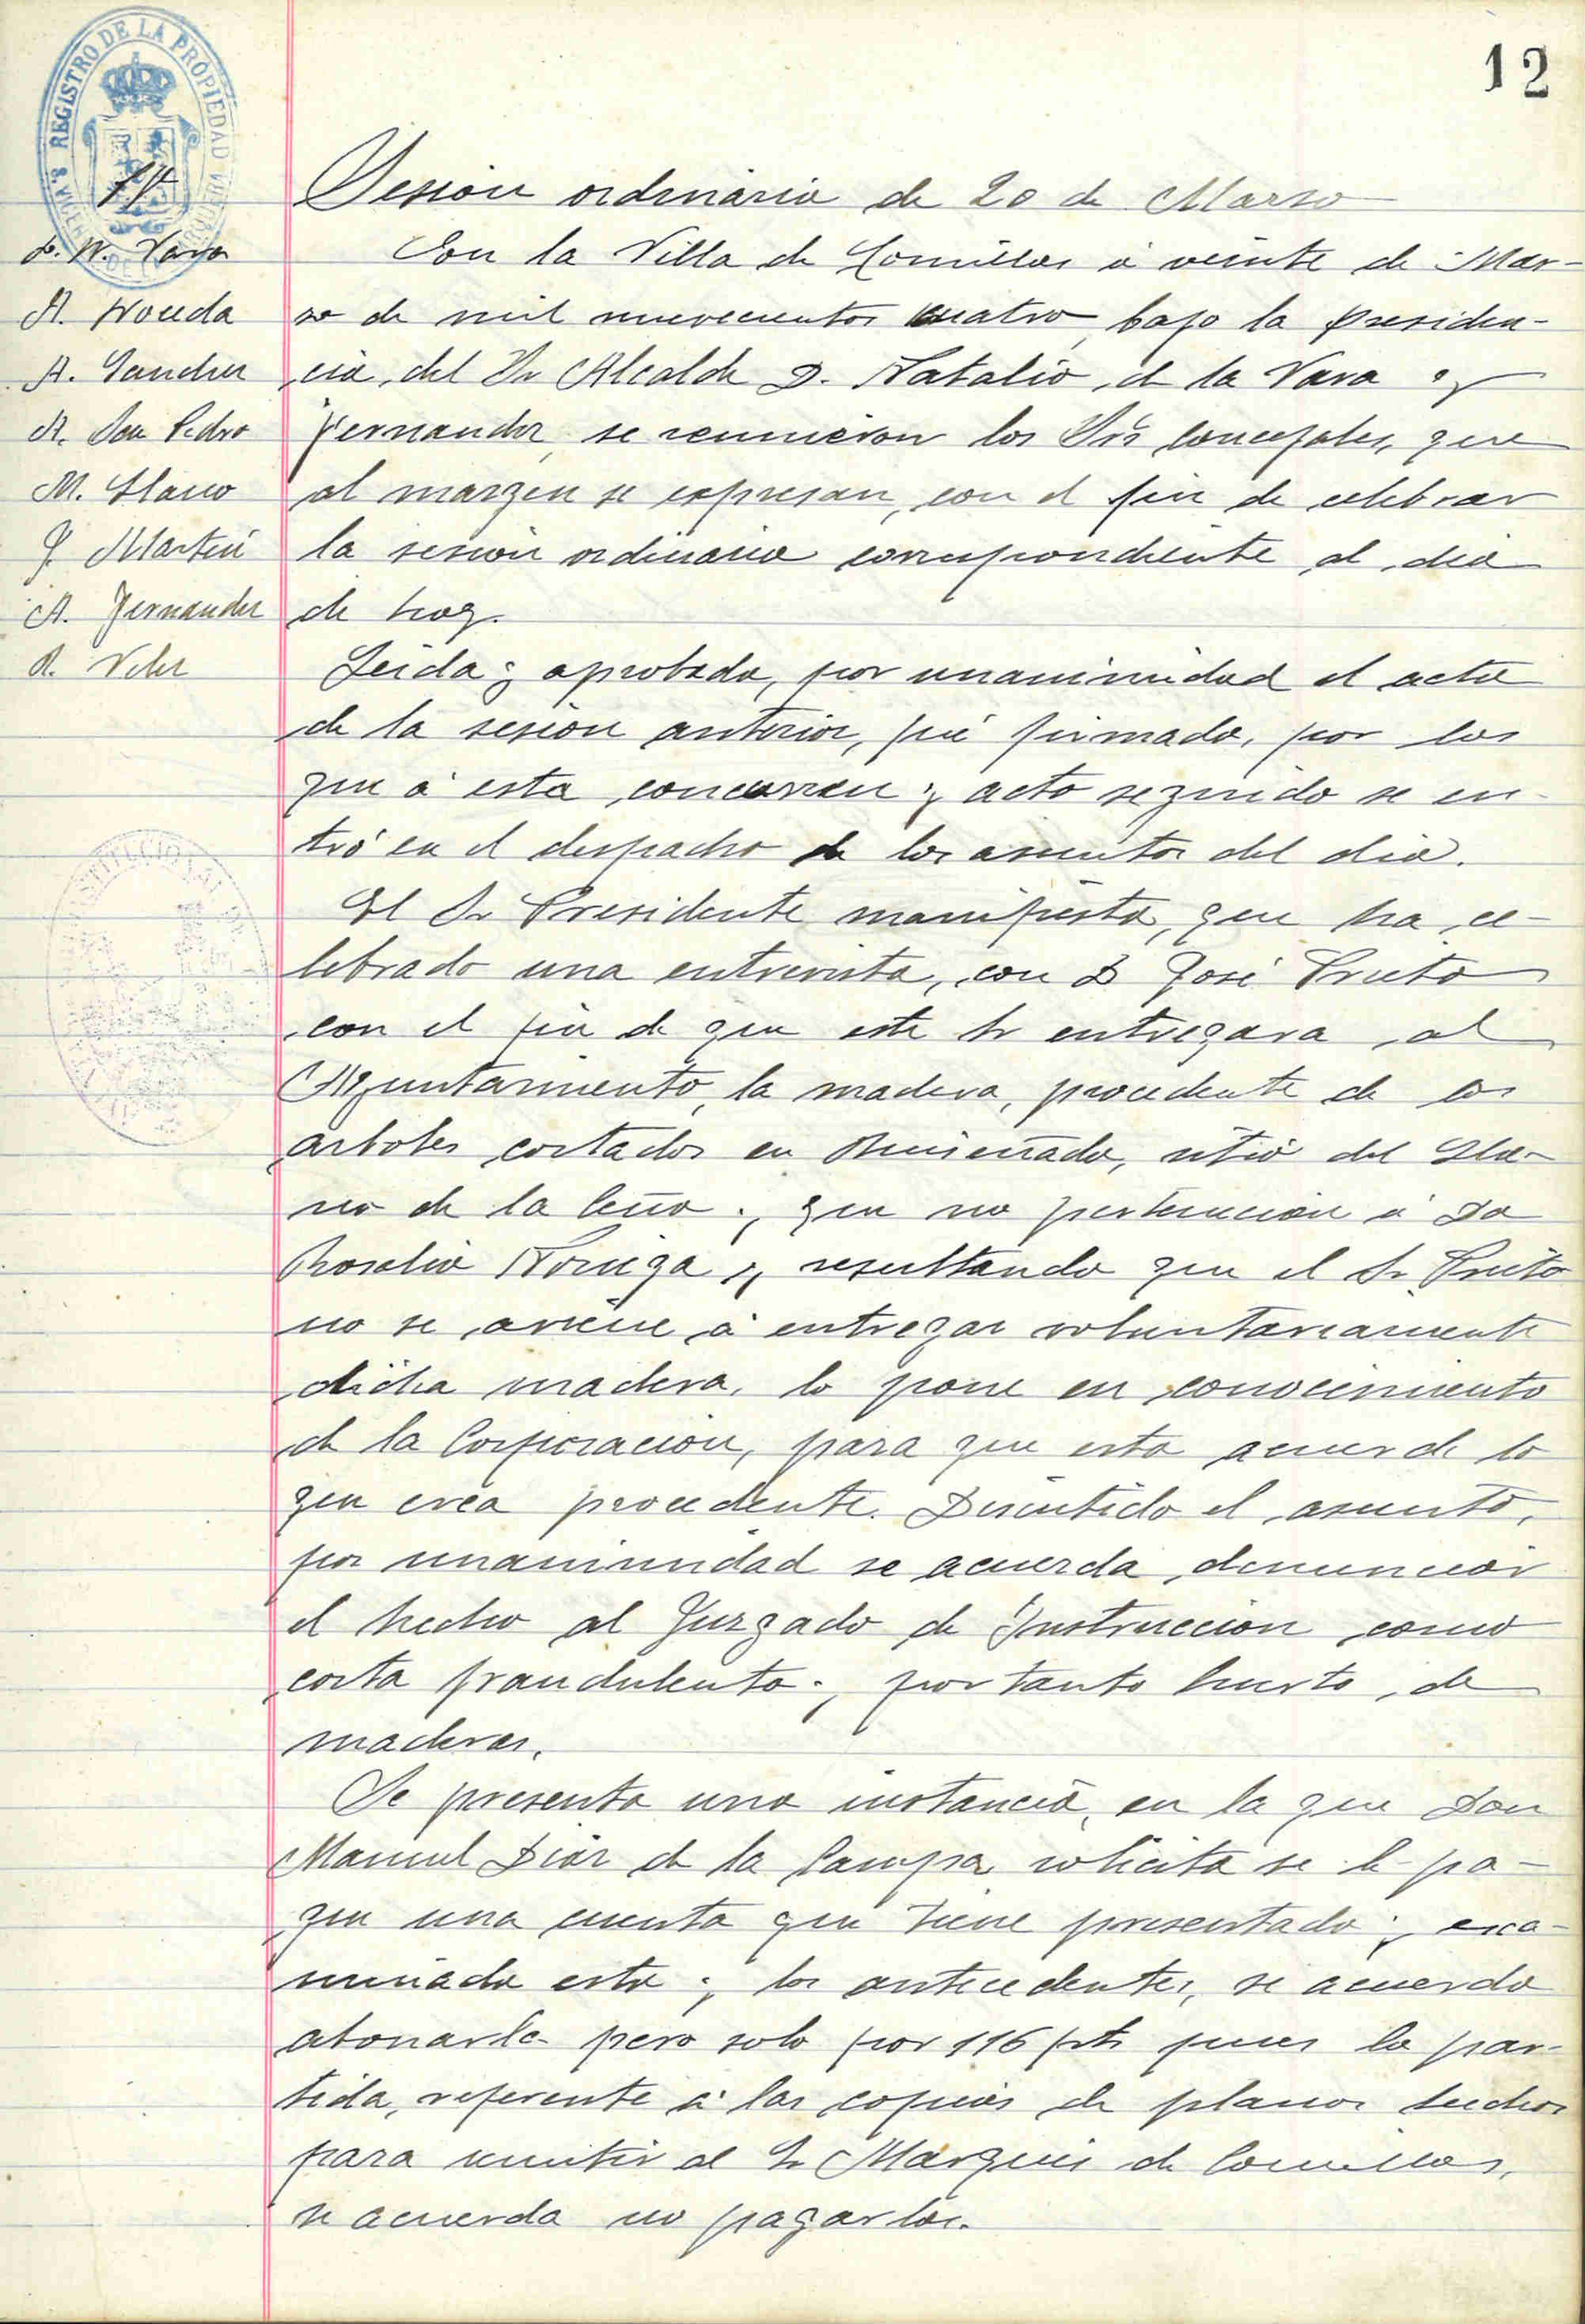 12
REGISTRO DE LA PROPIEDAD
Sesion ordinaria de 20 de Marso
En la Villa de Comillas á veinte de Mar-
so de mil nuevecientos cuatro, bajo la Presiden-
cia, del Sr Alcalde D. Natalio, de la Vara y
Fernandez, se reunieron los Srs concejales, que
al margen se expresan, con el fin de celebrar
la sesion ordinaria correspondiente al dia
de hoy.
N. Vara
A.
A. Sanchez
A. San Pedro
M. Llano
J. Martin
A. Fernandez
R. Velez
Leida y aprobada, por unanimidad el acta
de la sesion anterior, fué firmada, por los
que á esta concurren y acto seguido se en-
tró en el despacho de los asuntos del dia.
El Sr Presidente manifiesta, que ha ce-
lebrado una entrevista, con D José Prieto
con el fin de que este Sr entregara al
Ayuntamiento, la madera, procedente de los
arboles cortados en sitio del Lla-
no de la y que no pertenecian á Da
Rosalia Noriega y, resultando que el Sr Prieto
no se aviene á entregar voluntariamente
dicha madera, lo pone en conocimiento
de la Corporacion, para que esta acuerde lo
que crea procedente. Discutido el asunto,
por unanimidad se acuerda, denunciar
el hecho al Juzgado de Instruccion como
corta fraudulenta y, por tanto hurto, de
maderas.
Se presenta una instancia, en la que Don
Manuel Diaz de la Campa solicita se le pa-
gue una cuenta que tiene presentada y exa-
minada esta y los antecedentes, se acuerda
abonarla pero solo por 116 pts pues la par-
tida, referente á las copias de planos hechos
para remitir al Sr Marques de Comillas,
se acuerda no pagarlas.